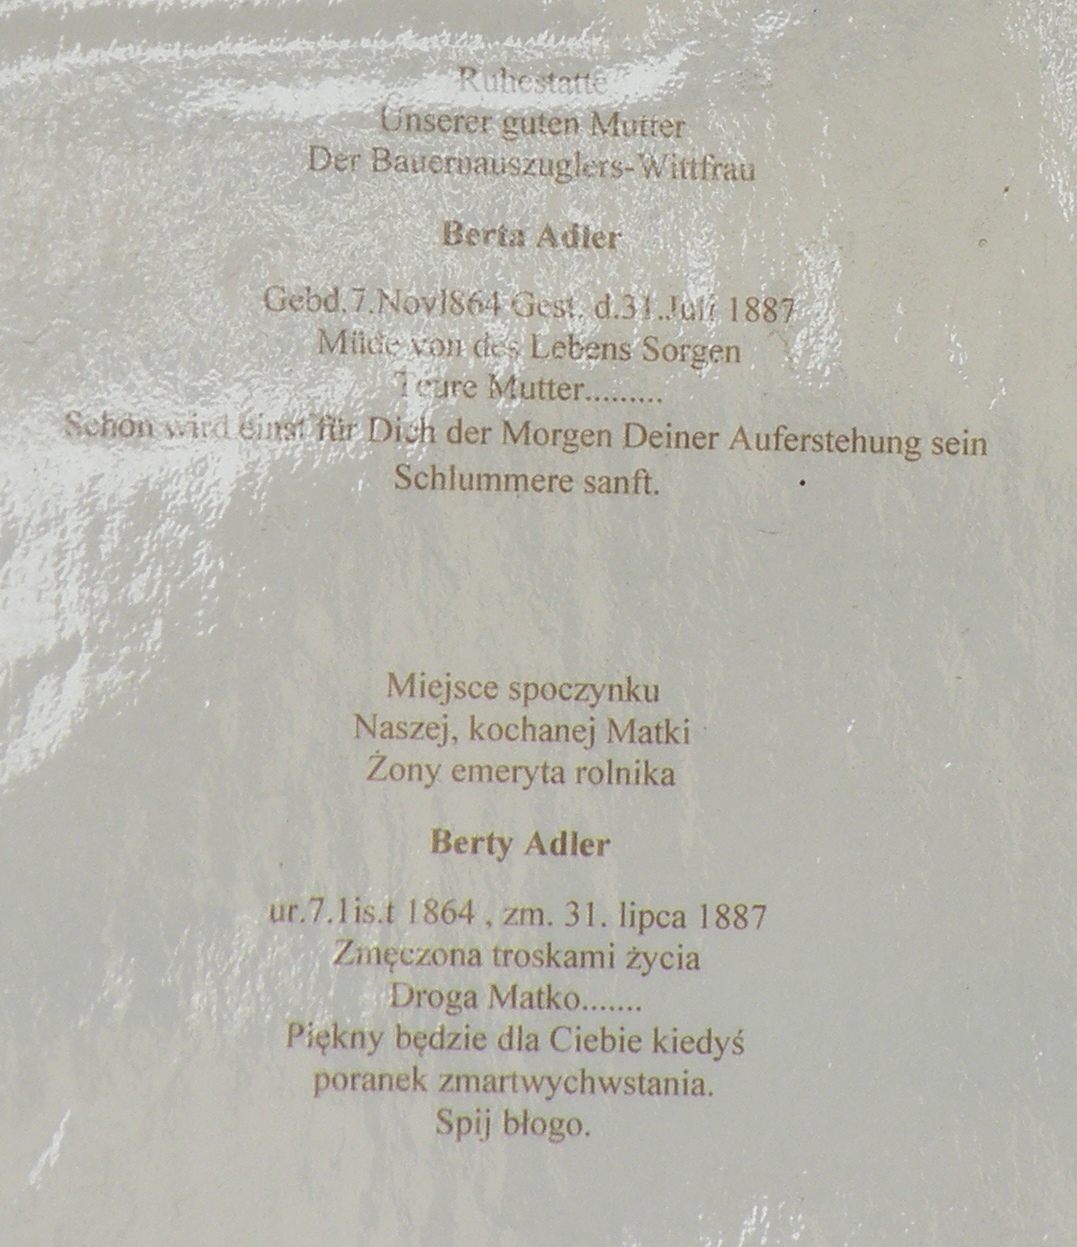 Ruhestatte
Unserer guten Mutter
Der Bauernauszuglers-Wittfrau
Berta Adler
Gebd.7.Nov1864 Gest. d.31.Juli 1887
Müde von des Lebens Sorgen
Teure Mutter.........
Schön wird einst für Dich der Morgen Deiner Auferstehung sein
Schlummere sanft.
Miejsce spoczynku
Naszej, kochanej Matki
Żony emeryta rolnika
Berty Adler
ur.7.lis.t 1864 , zm. 31. lipca 1887
Zmęczona troskami życia
Droga Matko.......
Piękny będzie dla Ciebie kiedyś
poranek zmartwychwstania.
Spij błogo.